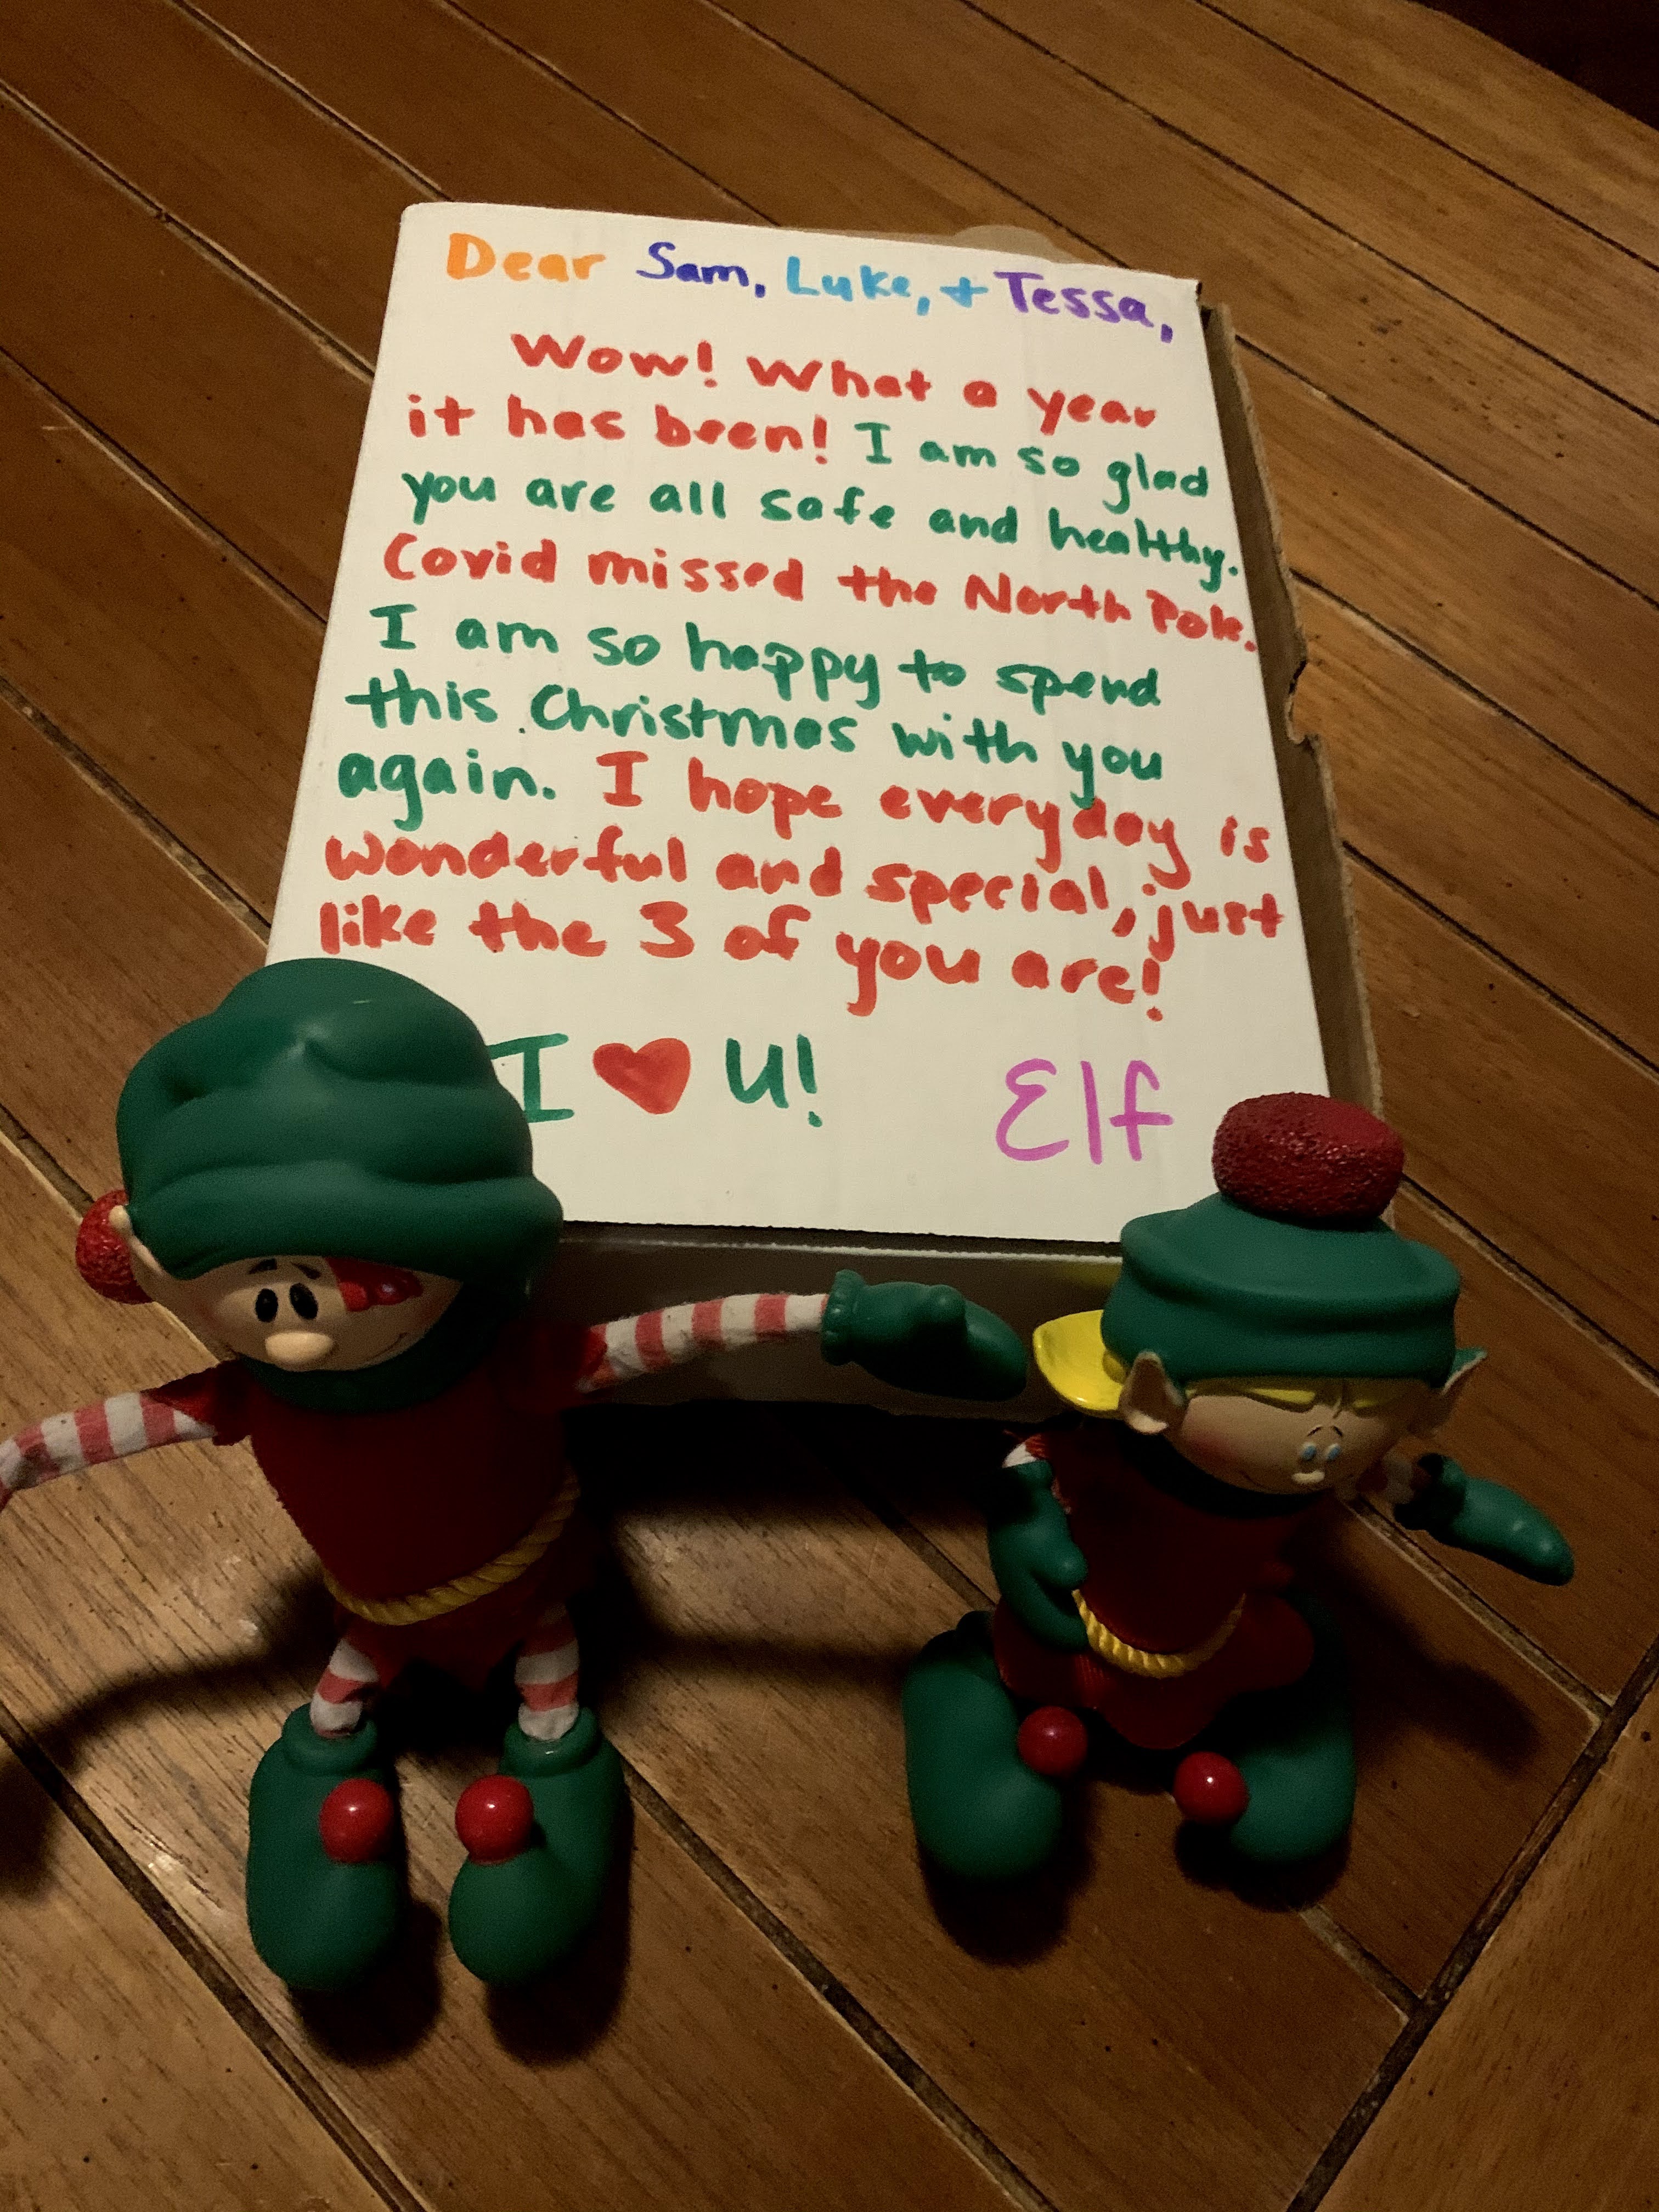 Dear Sam, Luke, + Tessa,
Wow! What a year
it has been! I am so glad
you are all safe and healthy.
Covid missed the North Pole.
I am so happy to spend
this Christmas with you
again. I hope everyday is
wonderful and special, just
like the 3 of you are!
I ♥ U! Elf